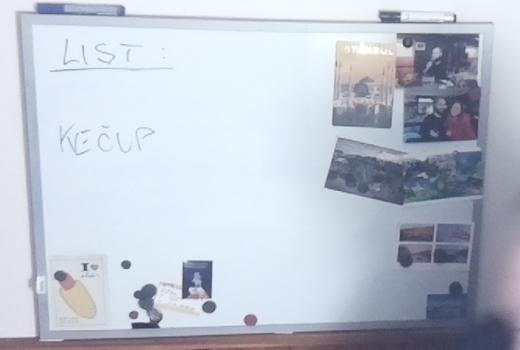 LIST:
KEČUP
ISTANBUL
I ❤